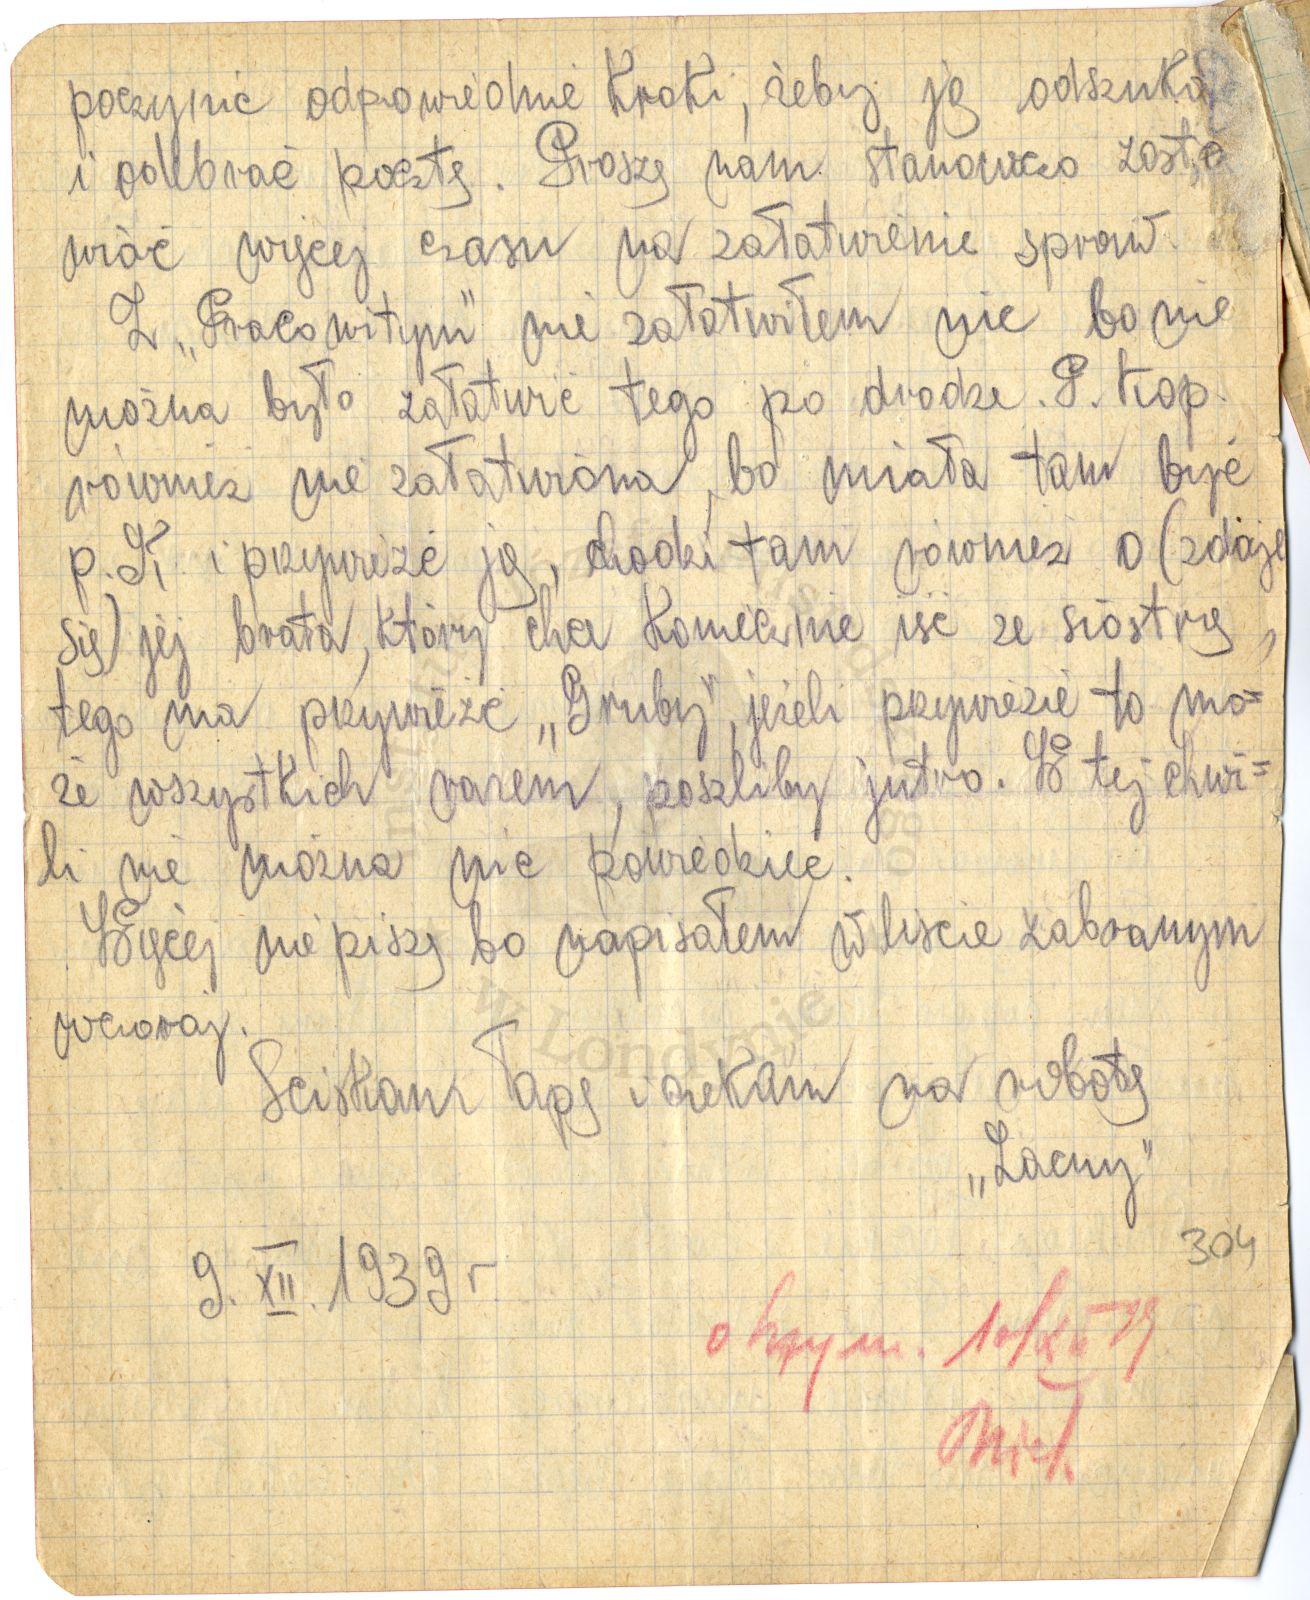 poczynić odpowiednie kroki, żeby ją odszukać
i odebrać pocztę. Proszę nam stanowczo zosta
wiać więcej czasu na załatwienie spraw.
Z „Pracowitym" nie załatwiłem nic bo nie
można było załatwić tego po drodze. P. Kop.
również nie załatwiona, bo miała tam być
p. K. i przywieźć ją, chodzi tam również o (zdaje
się) jej brata, który chce koniecznie iść ze siostrą,
tego ma przywieźć „Gruby", jeżeli przywiezie to mo=
że wszystkich razem, poszliby jutro. W tej chwi=
li nie można nic powiedzieć.
Więcej nie piszę bo napisałem w liście zabranym
wczoraj.
Sciskam łapę i czekam na robotę
„Zacny"
304
9. XII. 1939 r
otrzym. 10/XII 39
Instytut Józefa Piłsudskiego
w Londynie